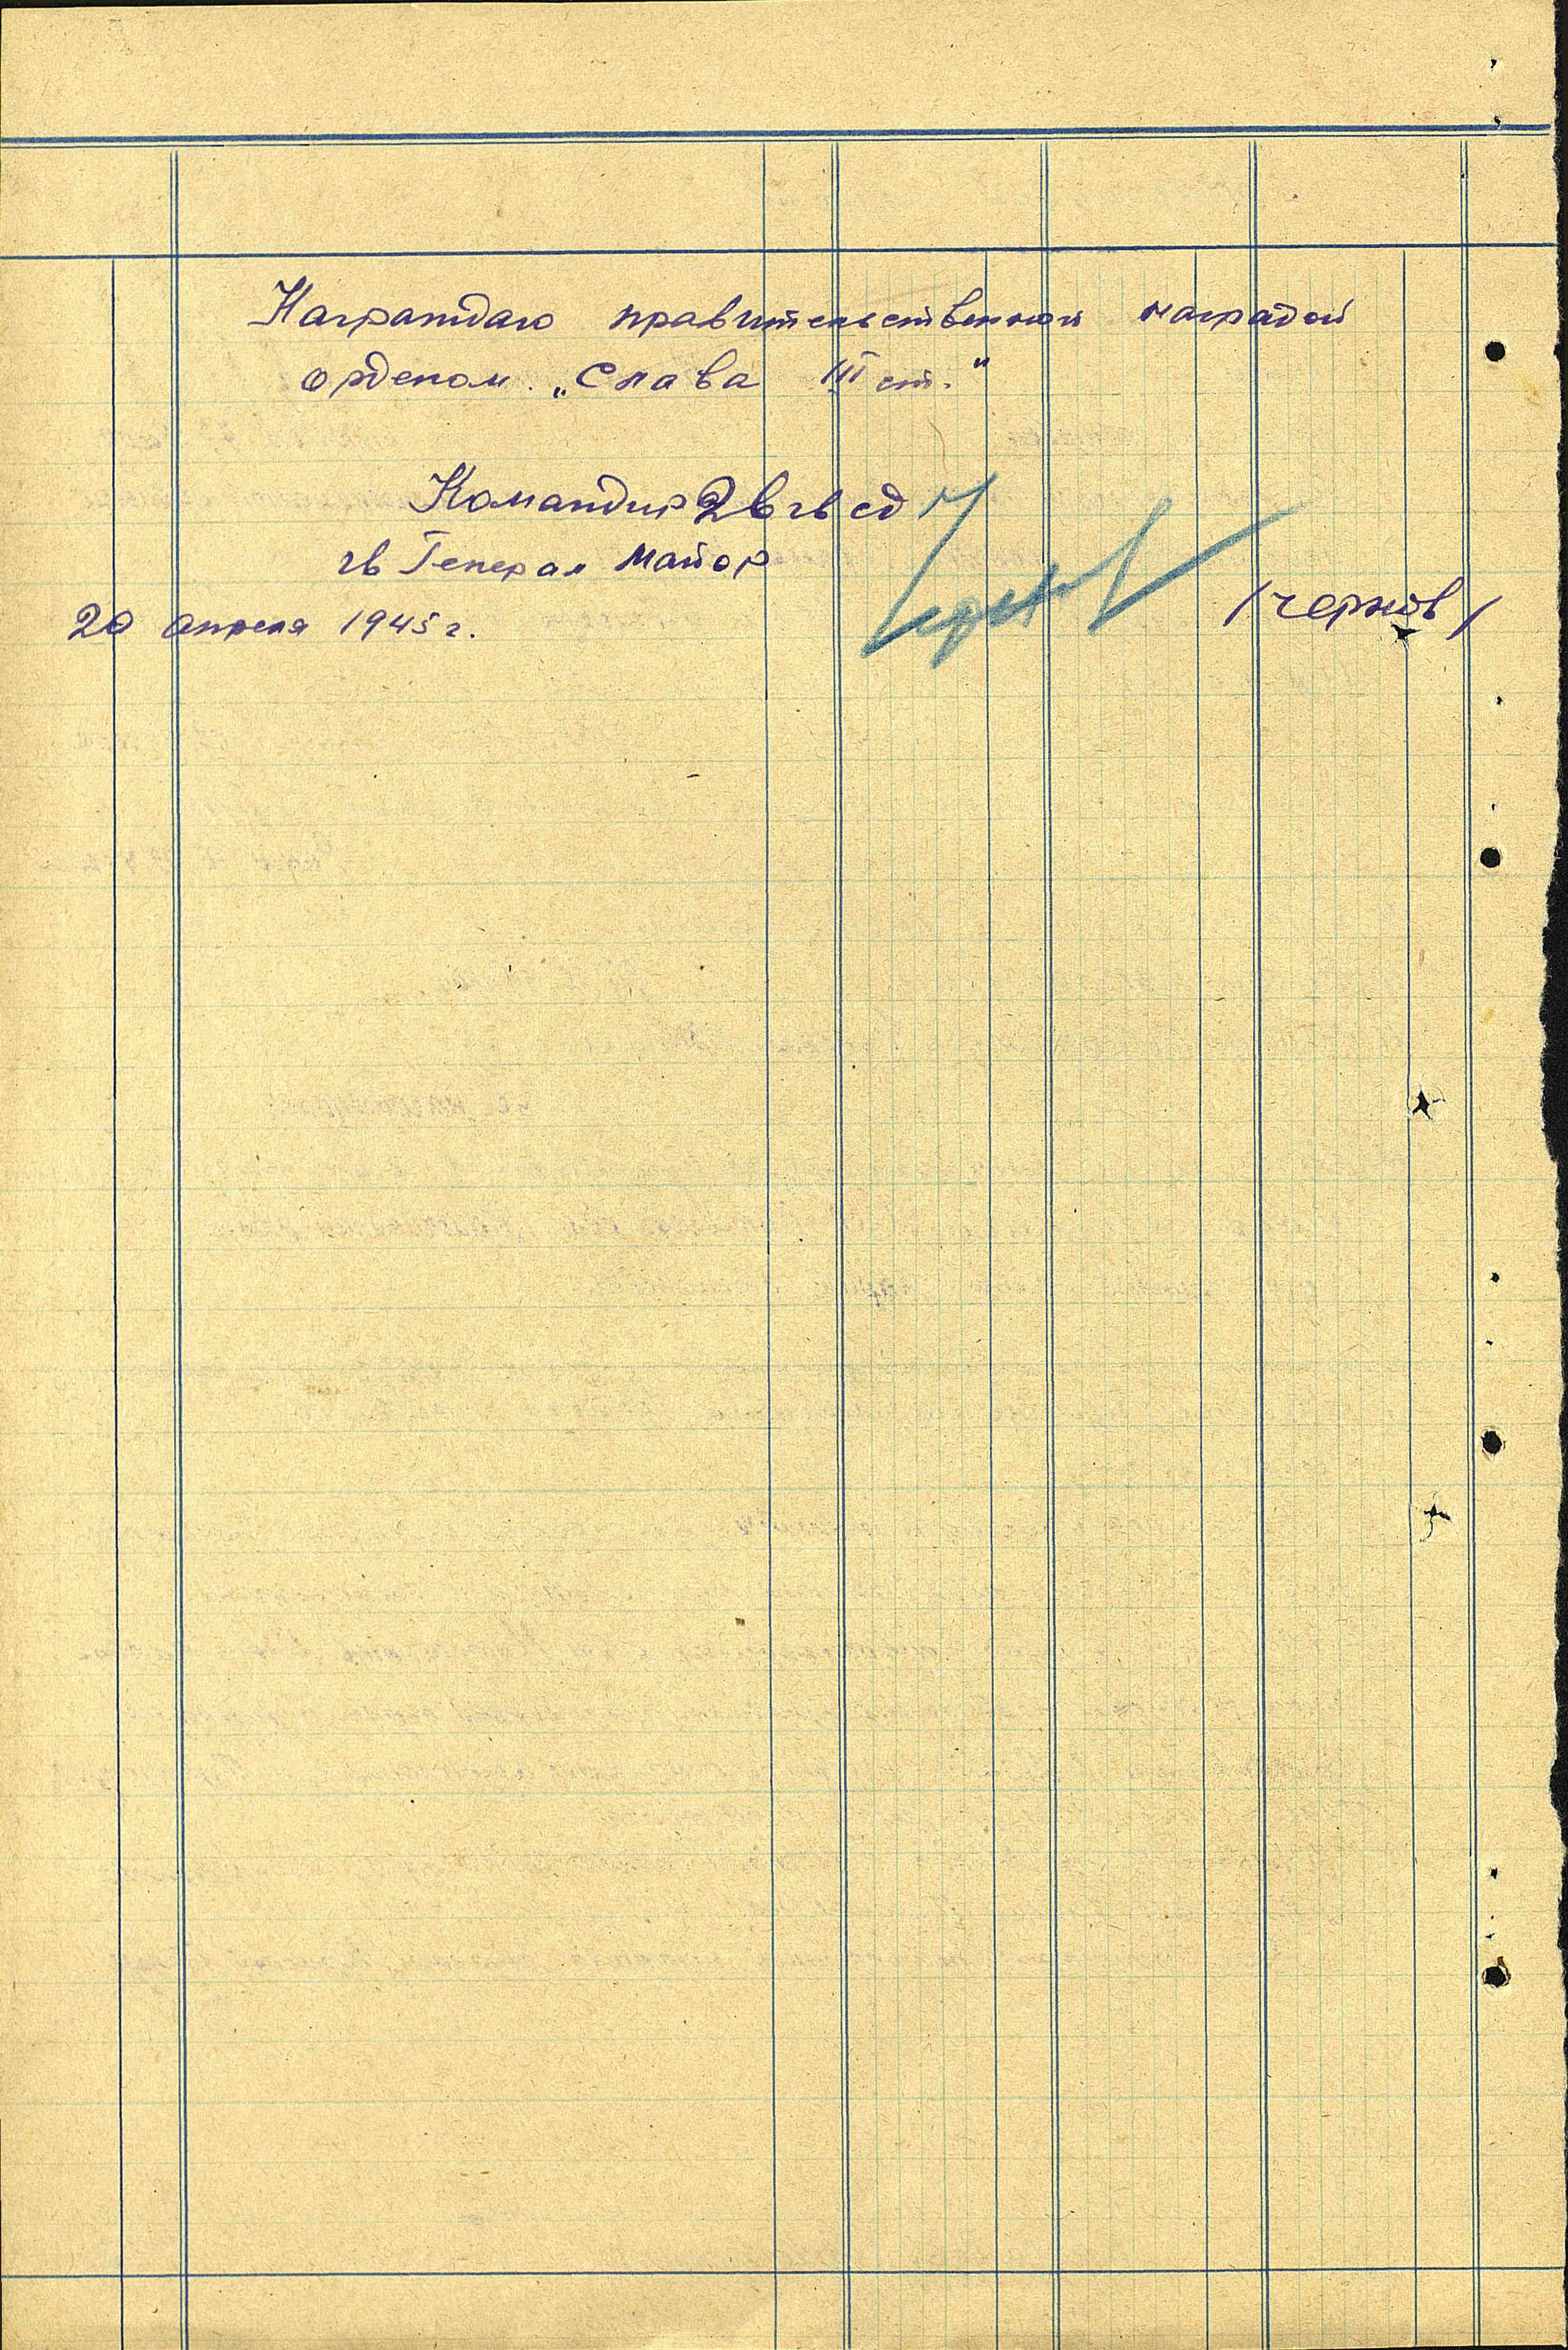 Награждаю правительственной наградой
орденом „Слава III ст."
Командир 26 гв сд
гв Генерал Майор
Чернов /Чернов/
20 апреля 1945 г.